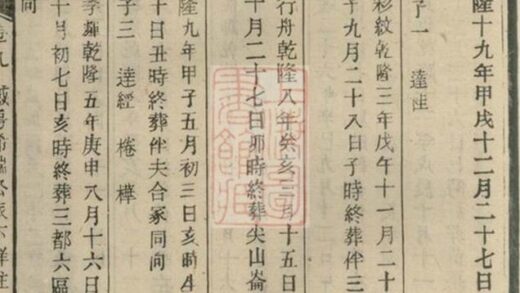 隆十九年甲戌十二月二十七日
子一 達
彩紋乾隆三年戊午十一月二十
十九月二十八日子時終葬伴三
行舟乾隆八年癸亥三月十五日
十月二十七日卯時終葬尖山崙
隆九年甲子五月初三日亥時生
十日丑時終葬伴夫合冢同向
子三 達經 棬 樟
季輝乾隆五年庚申八月十六日
十月初七日亥時終葬三都六區
向
上海圖書館藏